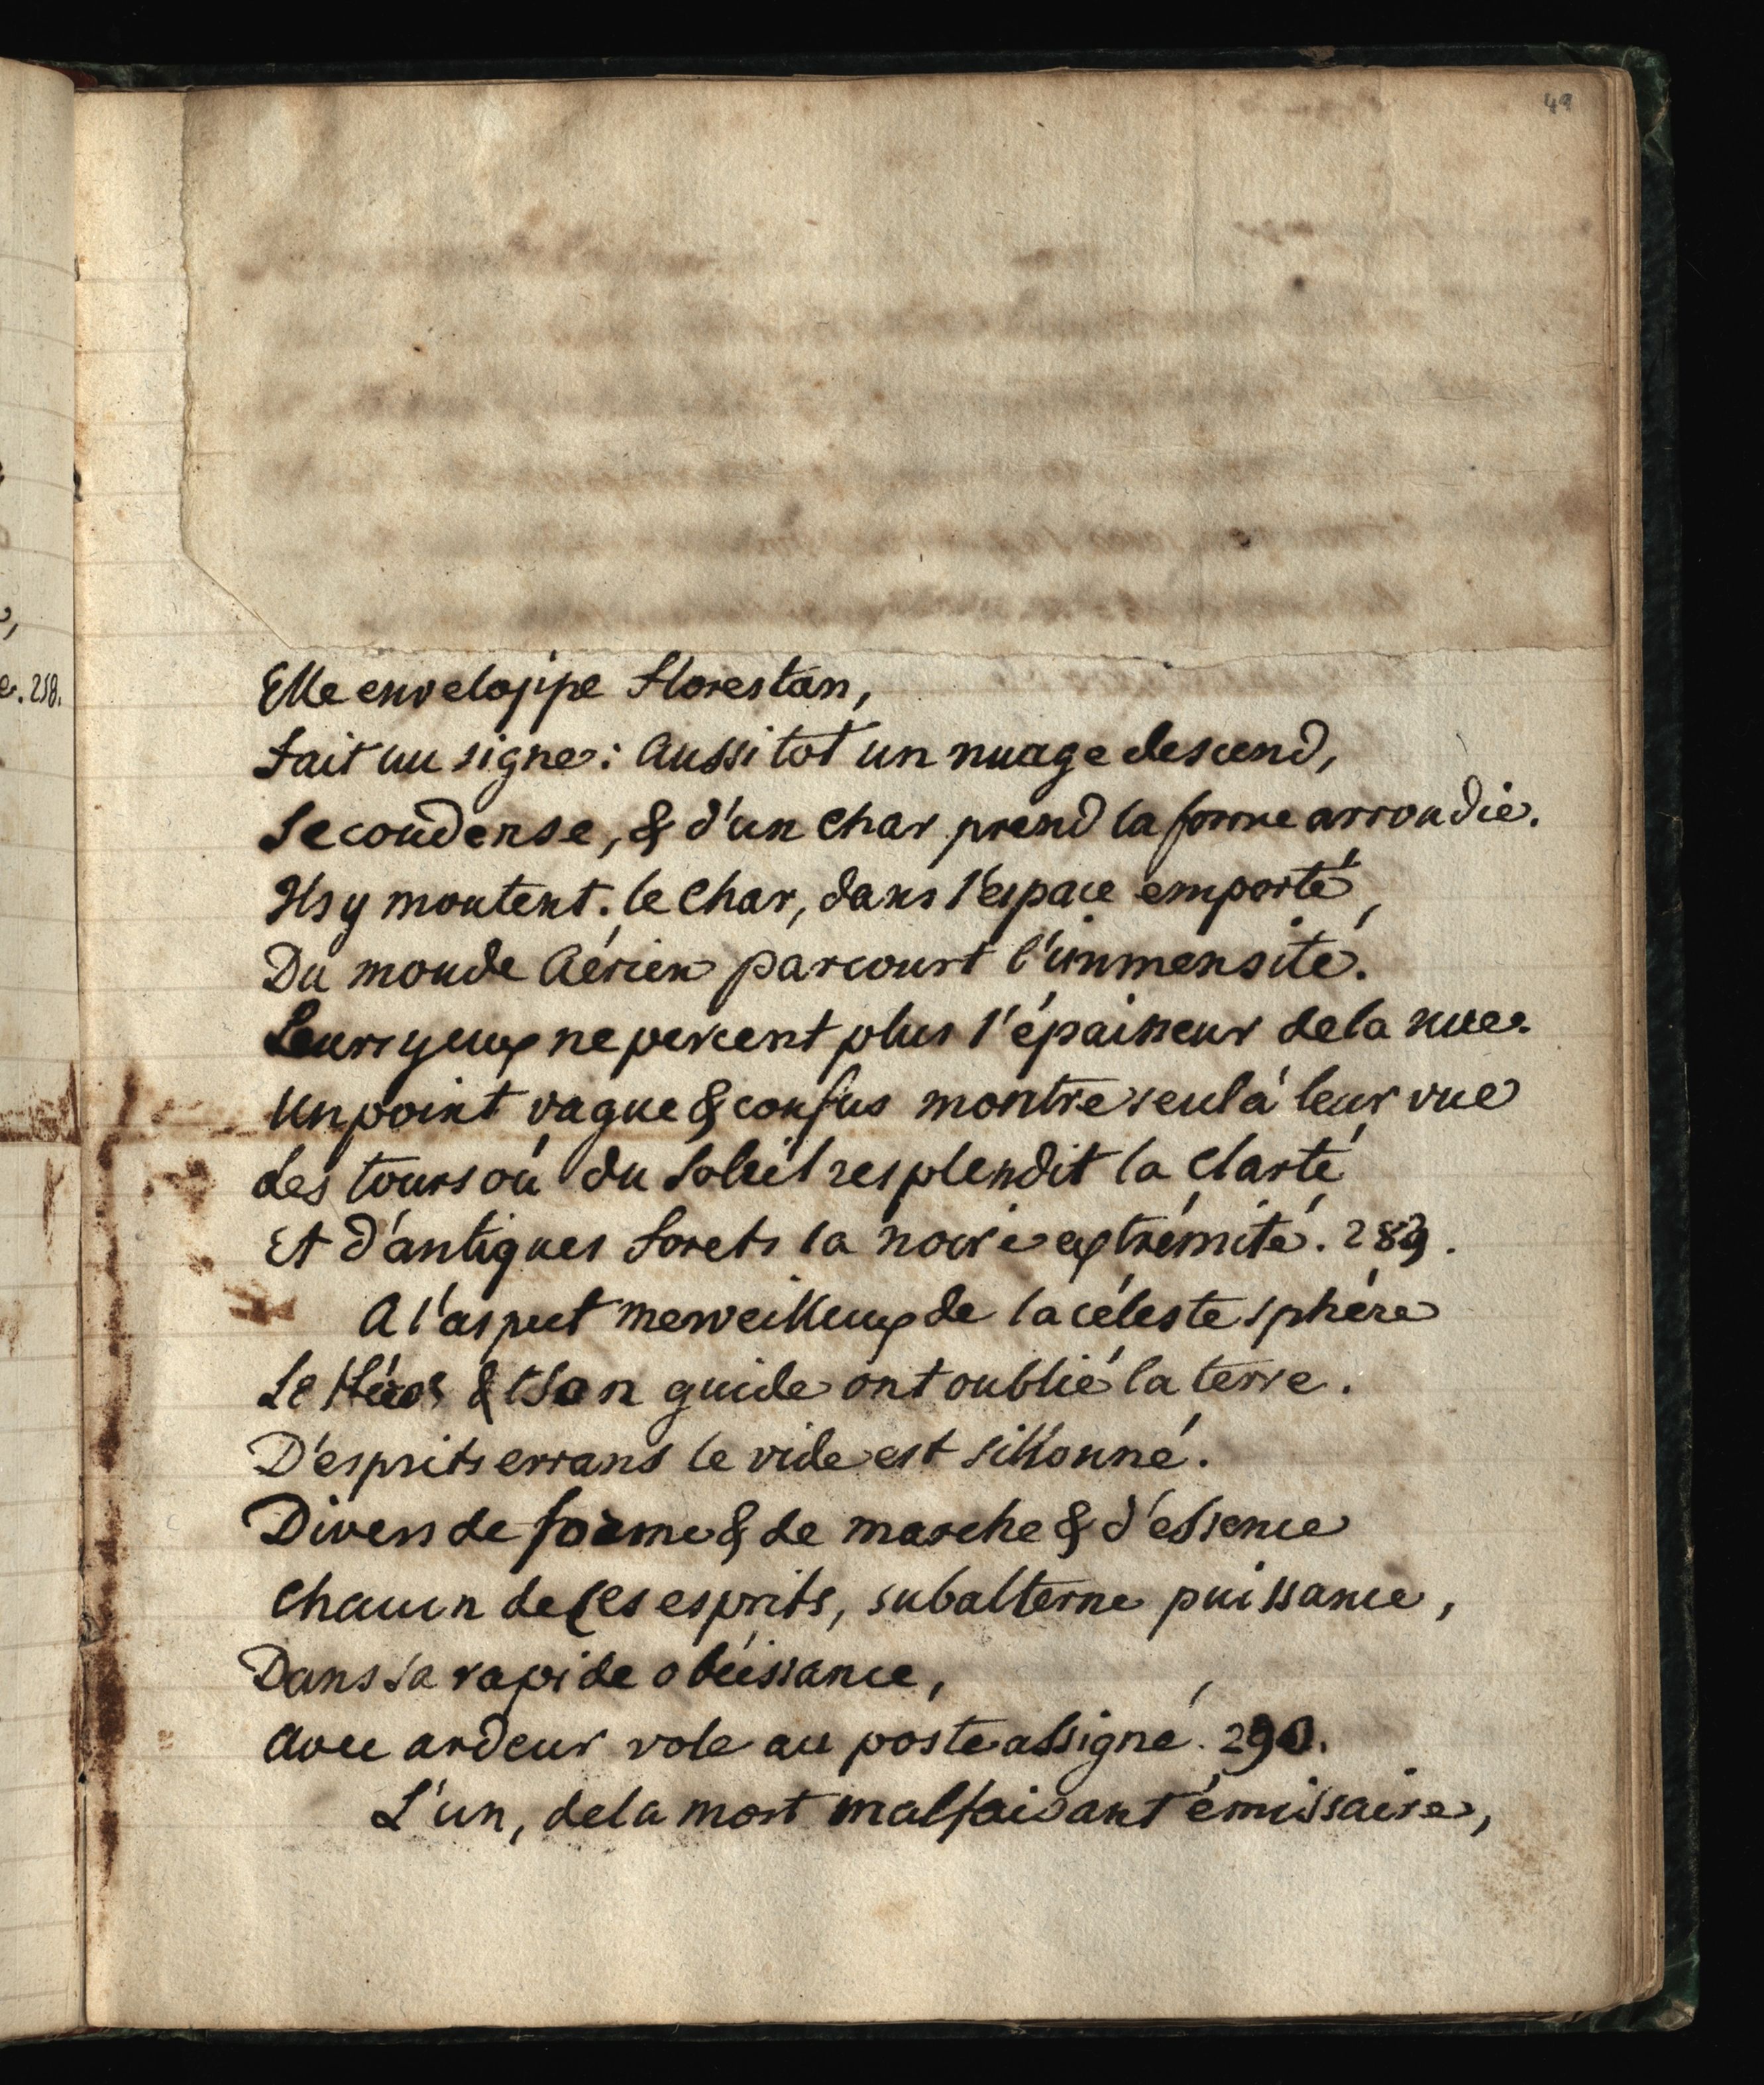 49
Elle enveloppe Florestan,
Fait un signe : Aussitot un nuage descend,
Se condense, & d'un char prend la forme arrondie.
Ils y montent. le Char, dans l'espace emporté,
Du monde Aérien parcourt l'immensité.
Leurs yeux ne percent plus l'épaisseur de la nue.
Un point vague & confus montre seul à leur vue
des tours où du Soleil resplendit la Clarté
Et d'antiques Forets la noire extrémité. 289.
A l'aspect merveilleux de la céleste sphére
Le Héros & Son guide ont oublié la terre.
D'esprits errans le vide est sillonné.
Divers de forme & de marche & d'essence
Chacun de ces esprits, subalterne puissance,
Dans sa rapide obéissance,
Avec ardeur vole au poste assigné. 290.
L'un, de la mort malfaisant émissaire,
e. 258.